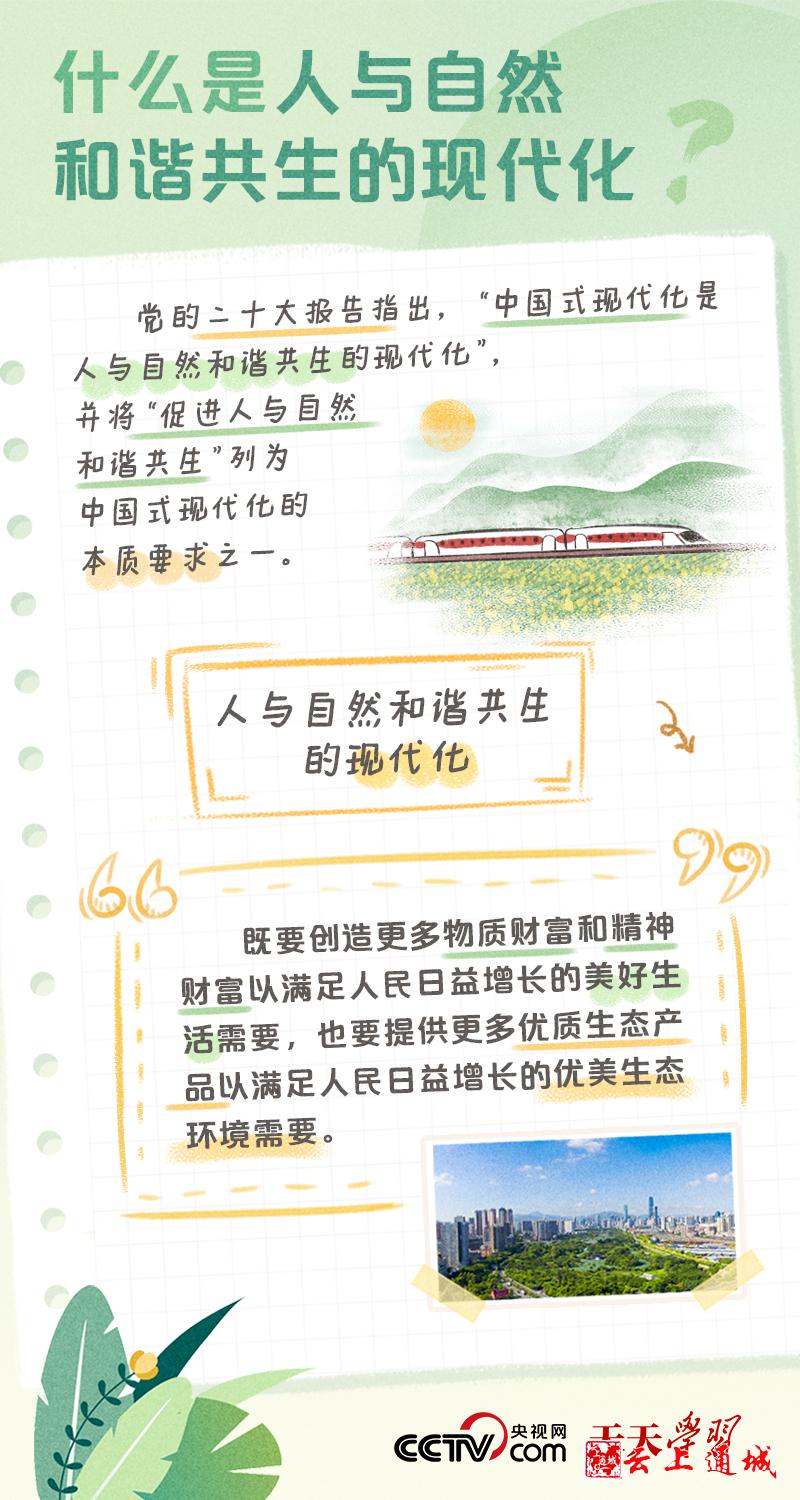 什么是人与自然
和谐共生的现代化？
党的二十大报告指出，“中国式现代化是
人与自然和谐共生的现代化”，
并将“促进人与自然
和谐共生”列为
中国式现代化的
本质要求之一。
人与自然和谐共生
的现代化
既要创造更多物质财富和精神
财富以满足人民日益增长的美好生
活需要，也要提供更多优质生态产
品以满足人民日益增长的优美生态
环境需要。
CCTV 央视网
com
天天学习